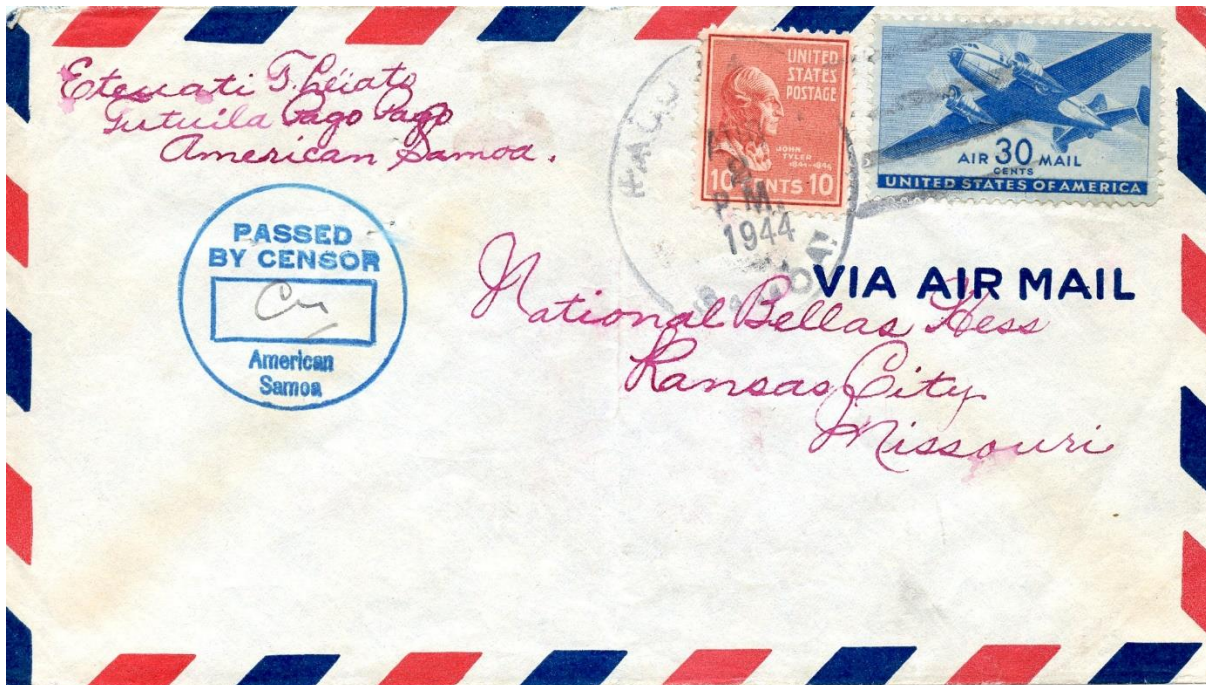 Eteuati T. Leiato
Tutuila Pago Pago
American Samoa.
PASSED
BY CENSOR
American
Samoa
UNITED
STATES
POSTAGE
JOHN
TYLER
1841-1845
10 CENTS 10
P.M.
1944
SAMOA
AIR 30 MAIL
CENTS
UNITED STATES OF AMERICA
VIA AIR MAIL
National Bellas Hess
Kansas City
Missouri